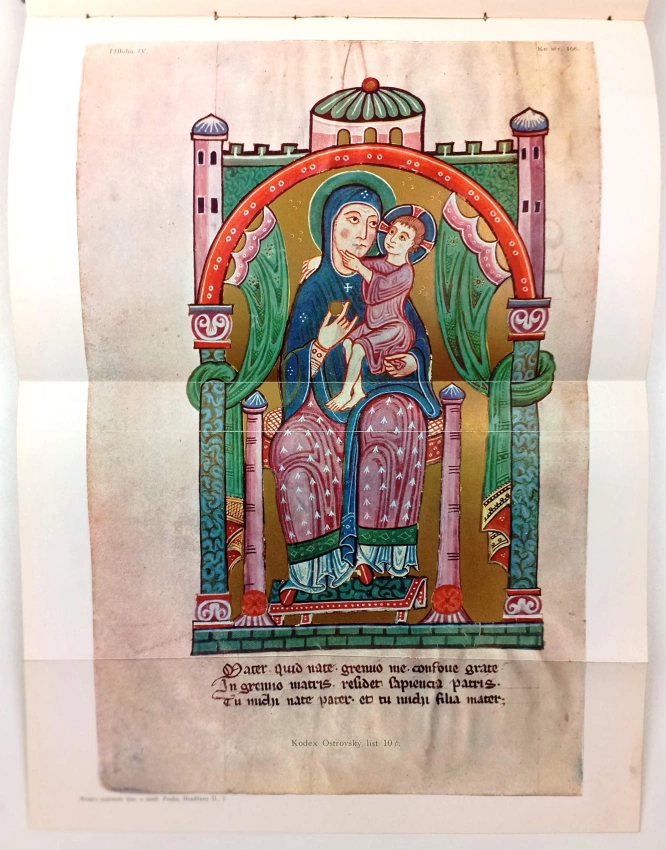 Příloha IV.
Ku str. 106.
Mater. quid nate. gremio me. confove grate
In gremio matris. residet sapiencia patris.
Tu michi nate pater. et tu michi filia mater;
Kodex Ostrovský list 10 č.